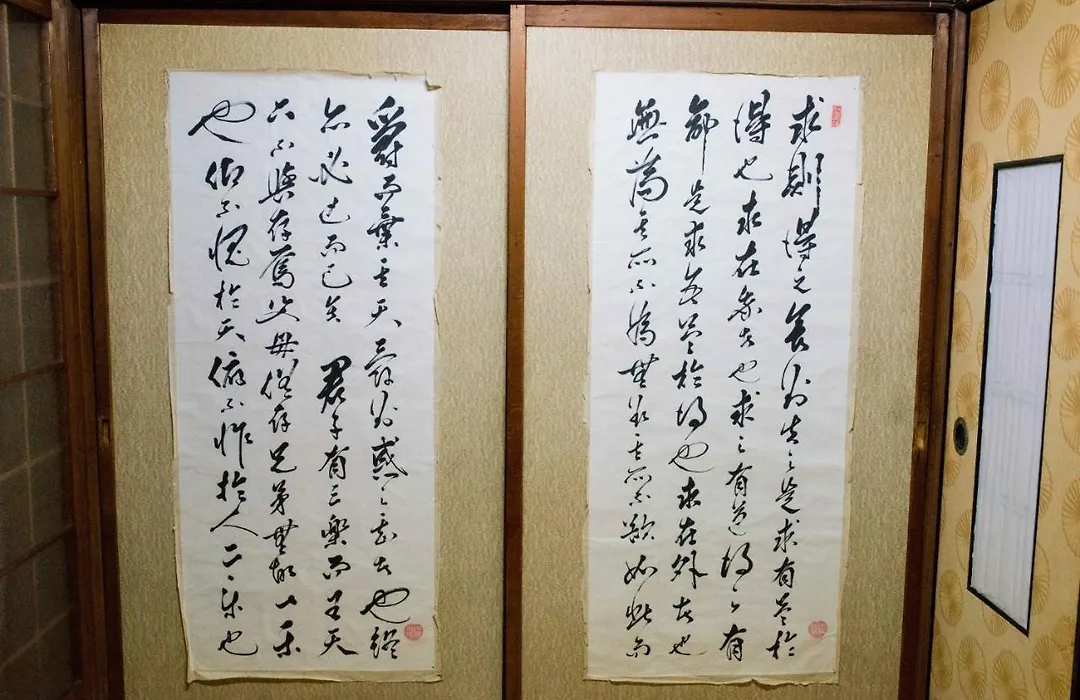 求則得之舍則失之是求有益於
得也求在我者也求之有道得之有
命是求無益於得也求在外者也
無為其所不為無欲其所不欲如此而
爵而棄其天爵則惑之甚者也終
亦必亡而已矣 君子有三樂而王天
下不與存焉父母俱存兄弟無故一樂
也仰不愧於天俯不怍於人二樂也